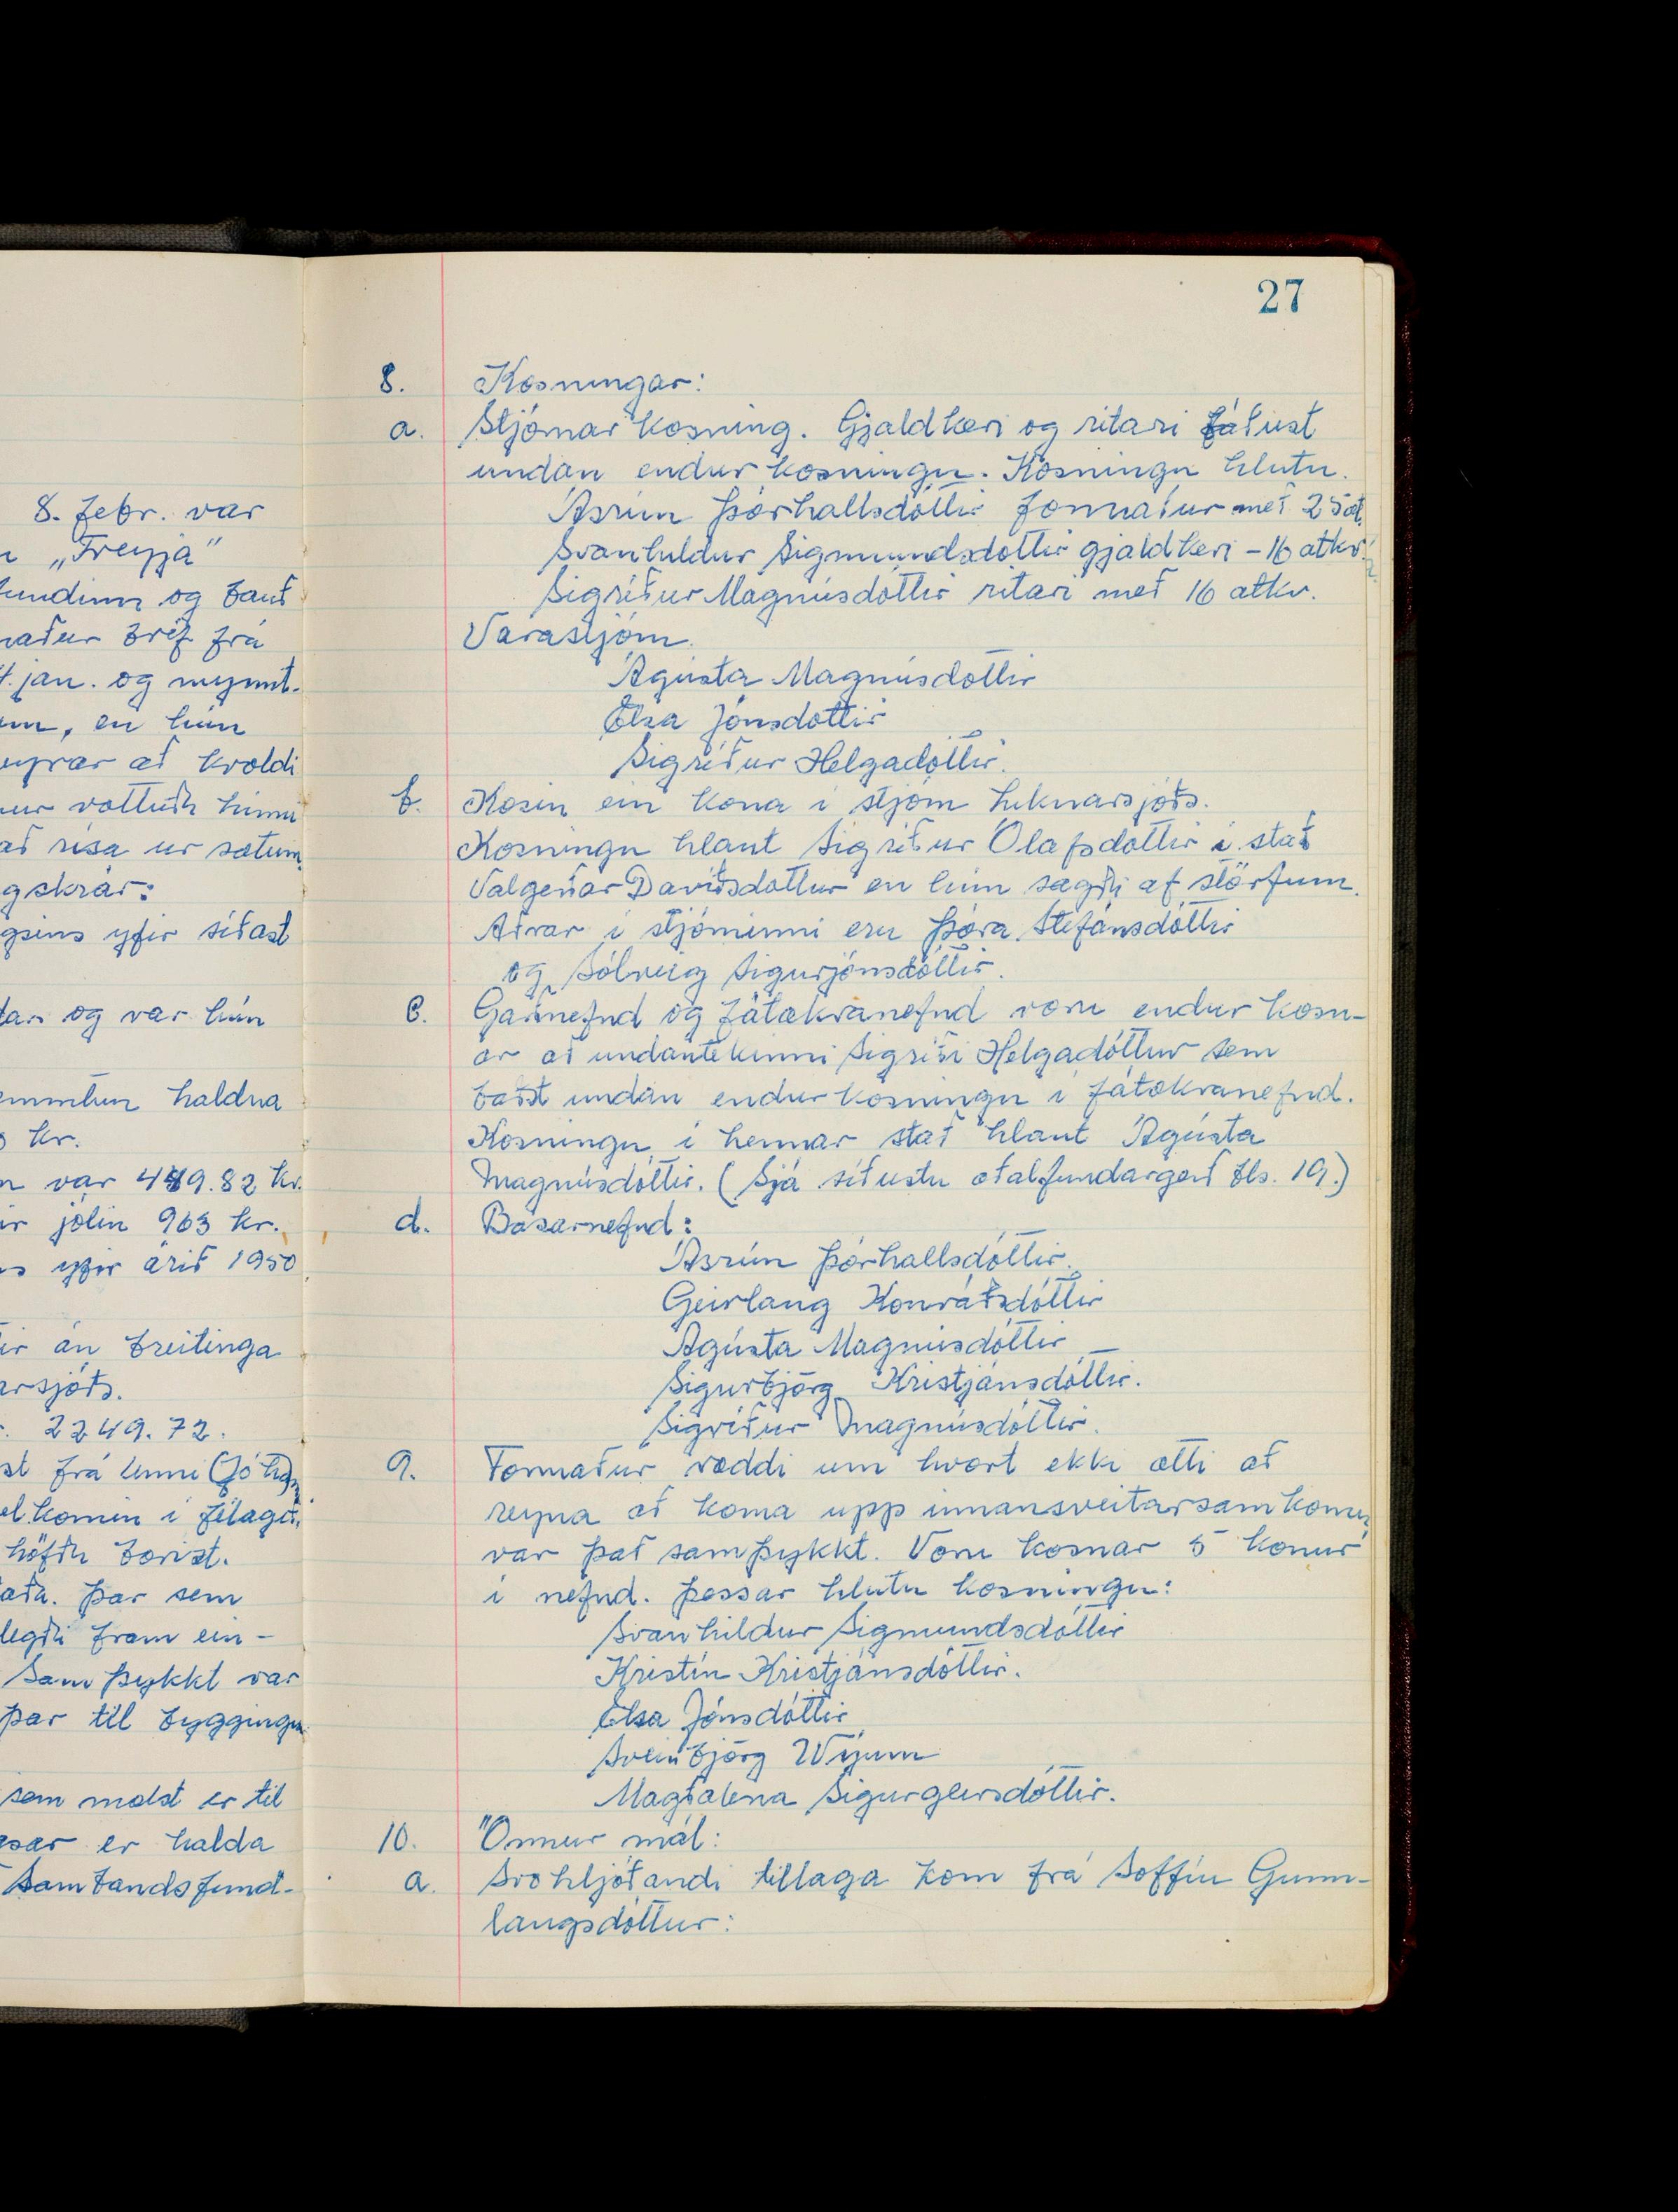 8. febr. var
„Freyja"
fundinn og bauð
bréf frá
jan. og mynnt-
en hún
að kvöldi
vottuðu hinni
að rísa úr sætum
gskrár:
gsins yfir síðast
og var hún
haldna
kr.
var 449.82 kr.
jólin 963 kr.
yfir árið 1950
án breitinga
arsjóðs.
2249.72.
frá henni
komin í félagið,
höfðu borist.
þar sem
legði fram ein-
Samþykkt var
þar til byggingu
sem mælst er til
er halda
Sambandsfund-
27
8. Kosningar:
a. Stjórnarkosning. Gjaldkeri og ritari báðust
undan endurkosningu. Kosningu hlutu.
Ásrún Þórhallsdóttir formaður með 25 at.
Svanhildur Sigmundsdóttir gjaldkeri - 16 atkv.
Sigríður Magnúsdóttir ritari með 16 atkv.
Varastjórn.
Ágústa Magnúsdóttir
Elsa Jónsdóttir
Sigríður Helgadóttir.
b. Kosin ein kona í stjórn líknarsjóðs.
Kosningu hlaut Sigríður Ólafsdóttir í stað
Valgerðar Davíðsdóttur en hún sagði af störfum.
Aðrar í stjórninni eru Þóra Stefánsdóttir
og Sólveig Sigurjónsdóttir.
c. Garnnefnd og fátækranefnd voru endurkosn-
ar að undantekinni Sigríði Helgadóttur sem
baðst undan endurkosningu í fátækranefnd.
Kosningu í hennar stað hlaut Ágústa
Magnúsdóttir. (Sjá síðustu aðalfundargerð bls. 19.)
d. Basarnefnd:
Ásrún Þórhallsdóttir.
Geirlaug Konráðsdóttir
Ágústa Magnúsdóttir
Sigurbjörg Kristjánsdóttir.
Sigríður Magnúsdóttir.
9. Formaður ræddi um hvort ekki ætti að
reyna að koma upp innansveitarsamkomu,
var það samþykkt. Voru kosnar 5 konur
í nefnd. Þessar hlutu kosningu:
Svanhildur Sigmundsdóttir
Kristín Kristjánsdóttir.
Elsa Jónsdóttir
Sveinbjörg Wíum
Magðalena Sigurgeirsdóttir.
10. Önnur mál:
a. Svohljóðandi tillaga kom frá Soffíu Gunn-
laugsdóttur: